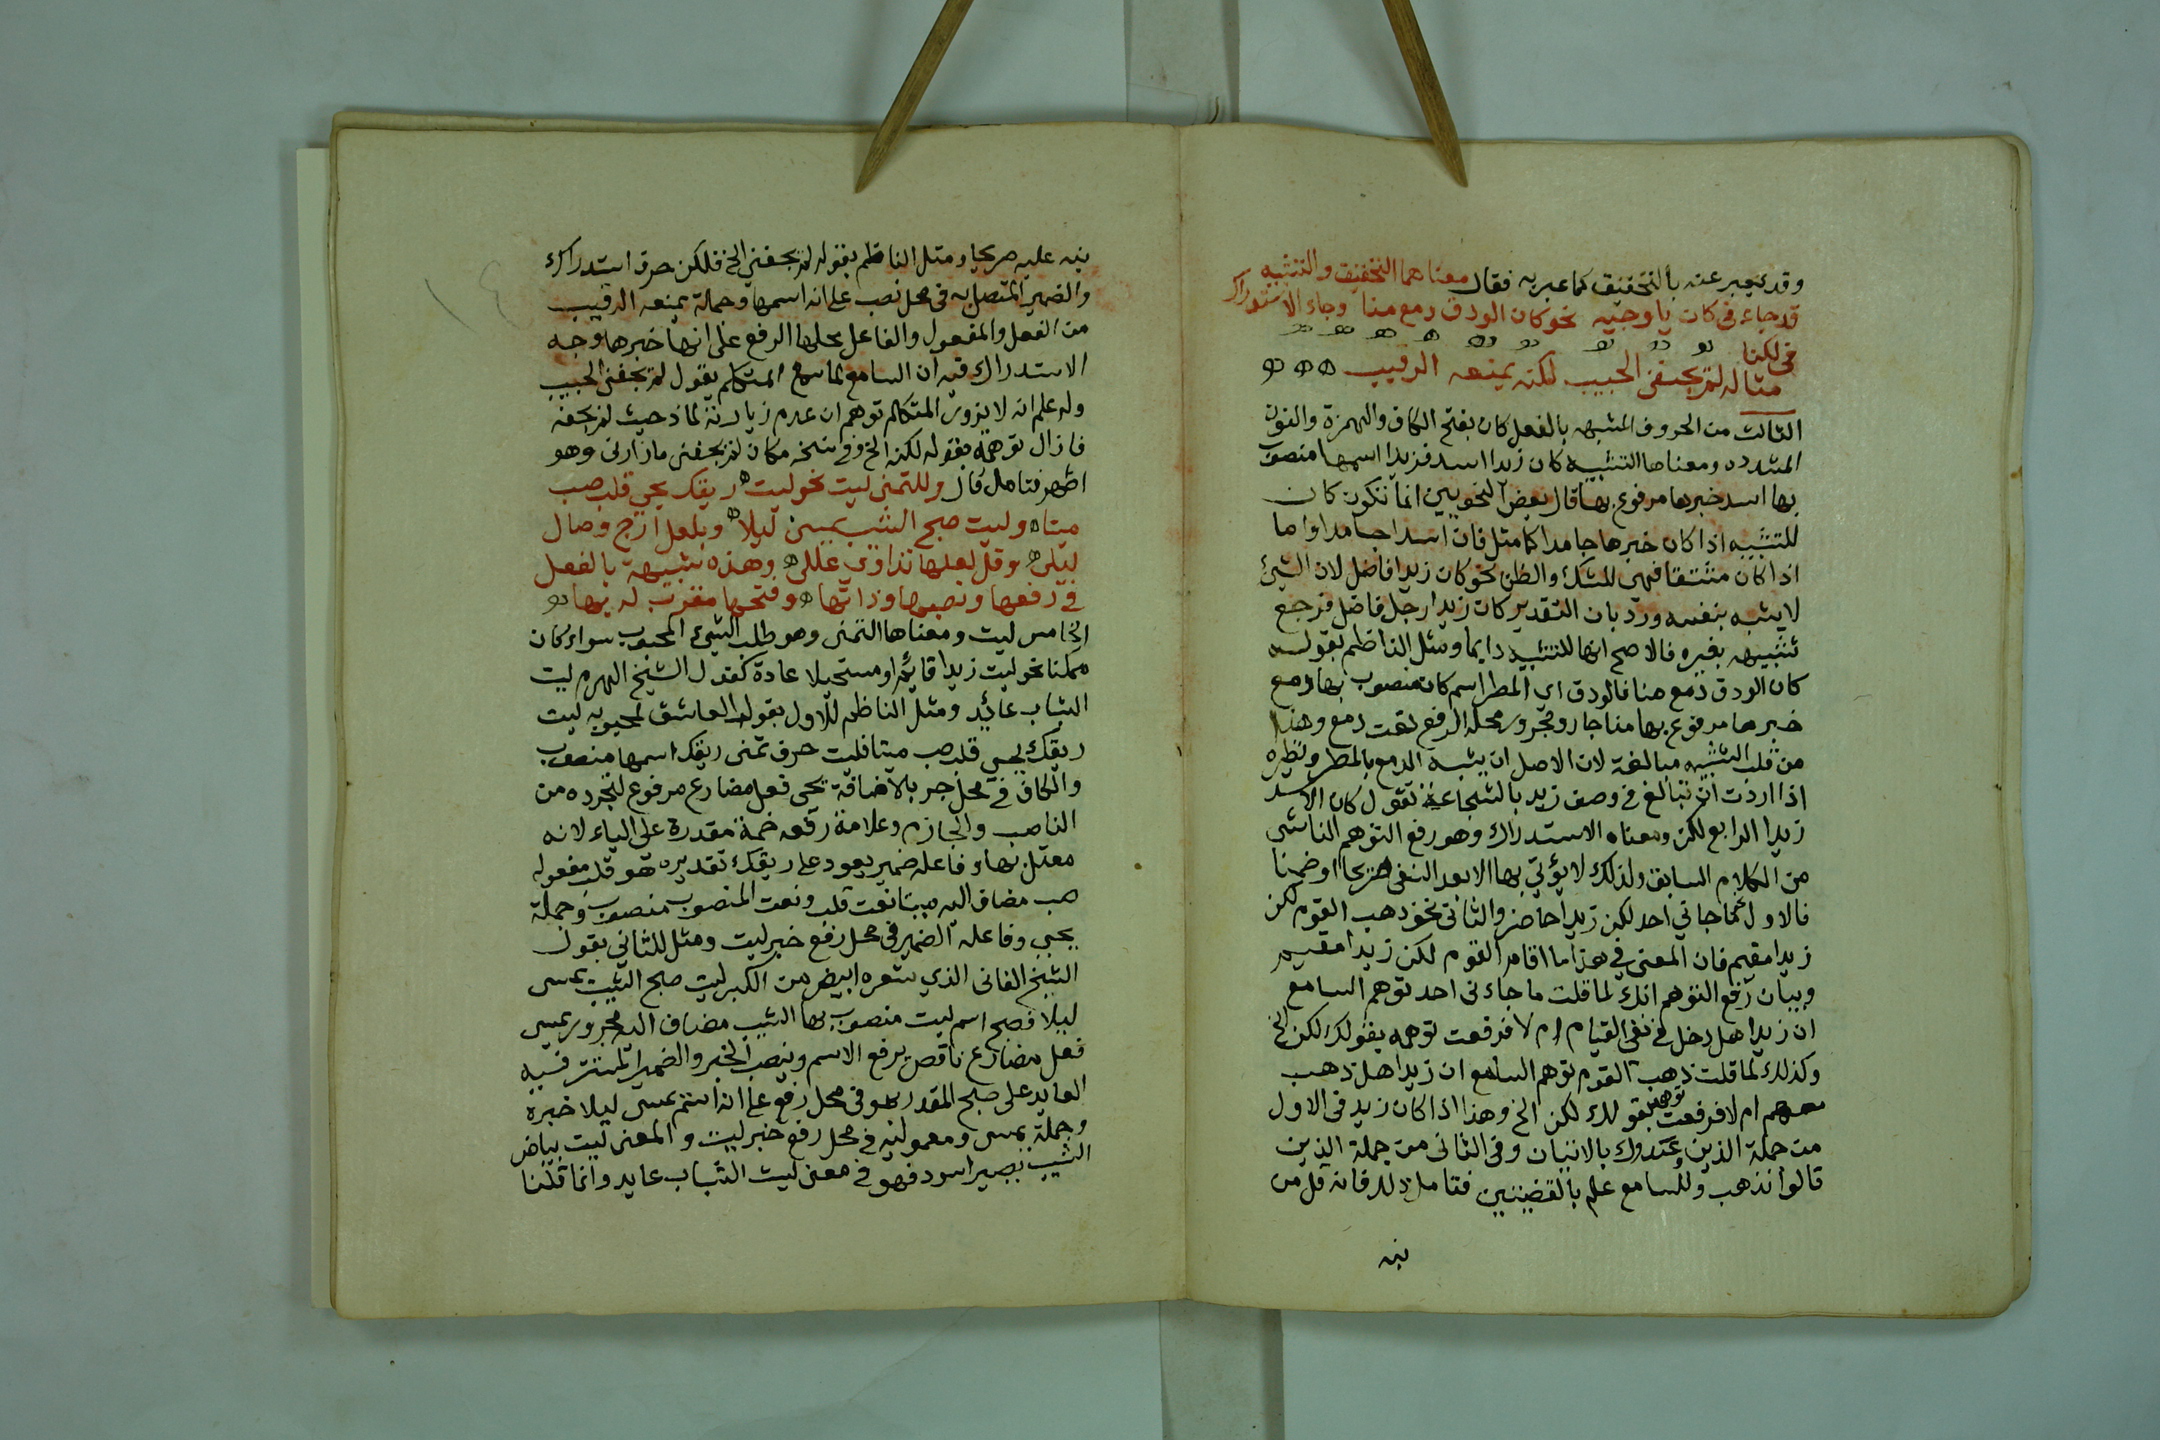 وقد يعبر عنه بالتحقيق كما عبر به فقال معناهما التحقيق والتشبيه
قد جاء في كان يا وجيه نحو كان الودق دمع منا وجاء الاستدراك
في لكنا
مثاله لم يجفني الحبيب لكنه يمنعه الرقيب
الثالث من الحروف المشبهه بالفعل كان بفتح الكاف والهمزة والنون
المشدده ومعناها التشبيه كان زيدا اسد فزيدا اسمها منصوب
بها اسد خبرها مرفوع بها قال بعض النحويين انما تكون كان
للتشبيه اذا كان خبرها جامدا كما مثل فان اسدا جامد واما
اذا كان مشتقا فهي للشك والظن نحو كان زيدا فاضل لان الشيئ
لا يشبه بنفسه ورد بان التقدير كان زيدا رجل فاضل فرجع
تشبيهه بغيره فالاصح انها للتشبيه دايما ومثل الناظم بقوله
كان الودق دمع منا فالودق اي المطر اسم كان منصوب بها ودمع
خبرها مرفوع بها منا جار ومجرور محله الرفع نعت دمع وهذا
من قلب التشبيه مبالغة لان الاصل ان يشبه الدمع بالمطر ونظيره
اذا اردت ان تبالغ في وصف زيد بالشجاعة تقول كان الاسد
زيدا الرابع لكن ومعناه الاستدراك وهو رفع التوهم الناشي
من الكلام السابق ولذلك لا يؤتي بها الا بعد النفي صريحا او ضمنا
فالاول كما جاني احد لكن زيدا حاضر والثاني نحو ذهب القوم لكن
زيدا مقيم فان المعني في هذا ما اقام القوم لكن زيدا مقيم
وبيان رفع التوهم انك لما قلت ما جاءني احد توهم السامع
ان زيدا هل دخل في نفي القيام ام لا فرفعت توهمه بقولك لكن الخ
وكذلك لما قلت ذهب القوم توهم السامع ان زيدا هل ذهب
معهم ام لا فرفعت توهمه بقولك لكن الخ وهذا اذا كان زيد في الاول
من جملة الذين وعدوك بالاتيان وفي الثاني من جملة الذين
قالوا نذهب وللسامع علم بالقضيتين فتامل ذلك فانه قل من
نبه
نبه عليه صريحا ومثل الناظم بقوله لم يجفني الخ فلكن حرف استدراك
والضمير المتصل به في محل نصب على انه اسمها وجملة يمنعه الرقيب
من الفعل والمفعول والفاعل محلها الرفع على انها خبرها وجه
الاستدراك فيه ان السامع لما سمع المتكلم يقول لم يجفني الحبيب
وله علم انه لا يزور المتكلم توهم ان عدم زيارته لماذا حيث لم يجفه
فازال توهمه بقوله لكنه الخ وفي نسخه مكان لم يجفني ما زارني وهو
اظهر فتامل قال وللتمني ليت نحو ليت ريقك يحي قلب صب
ميتا وليت صبح الشيب يمسي ليلا وبلعل ارج وصال
ليلى وقل لعلها تداوي عللي وهذه شبيهة بالفعل
في رفعها ونصبها وذاتها وفتحها مقرب له بها
الخامس ليت ومعناها التمني وهو طلب الشيئ المحبوب سواء كان
ممكنا نحو ليت زيدا قايم او مستحيلا عادة كقول الشيخ الهرم ليت
الشباب عائد ومثل الناظم للاول بقول العاشق لمحبوبه ليت
ريقك يحيي قلب صب ميتا فليت حرف تمني ريقك اسمها منصوب
والكاف في محل جر بالاضافة يحي فعل مضارع مرفوع لتجرده من
الناصب والجازم وعلامة رفعه ضمة مقدرة على الياء لانه
معتل بها وفاعله ضمير يعود على ريقك تقديره هو قلب مفعوله
صب مضاف اليه ميتا نعت قلب ونعت المنصوب منصوب وجملة
يحيي وفاعله الضمير في محل رفع خبر ليت ومثل للثاني بقول
الشيخ الفاني الذي شعره ابيض من الكبر ليت صبح الشيب يمسي
ليلا فصبح اسم ليت منصوب بها الشيب مضاف اليه مجرور يمسي
فعل مضارع ناقص يرفع الاسم وينصب الخبر والضمير المستتر فيه
العايد على صبح المقدر بهو في محل رفع على انه اسم يمسي ليلا خبره
وجملة يمسي ومعموليه في محل رفع خبر ليت والمعني ليت بياض
الشيب يصير اسود فهو في معنى ليت الشباب عايد وانما قلنا